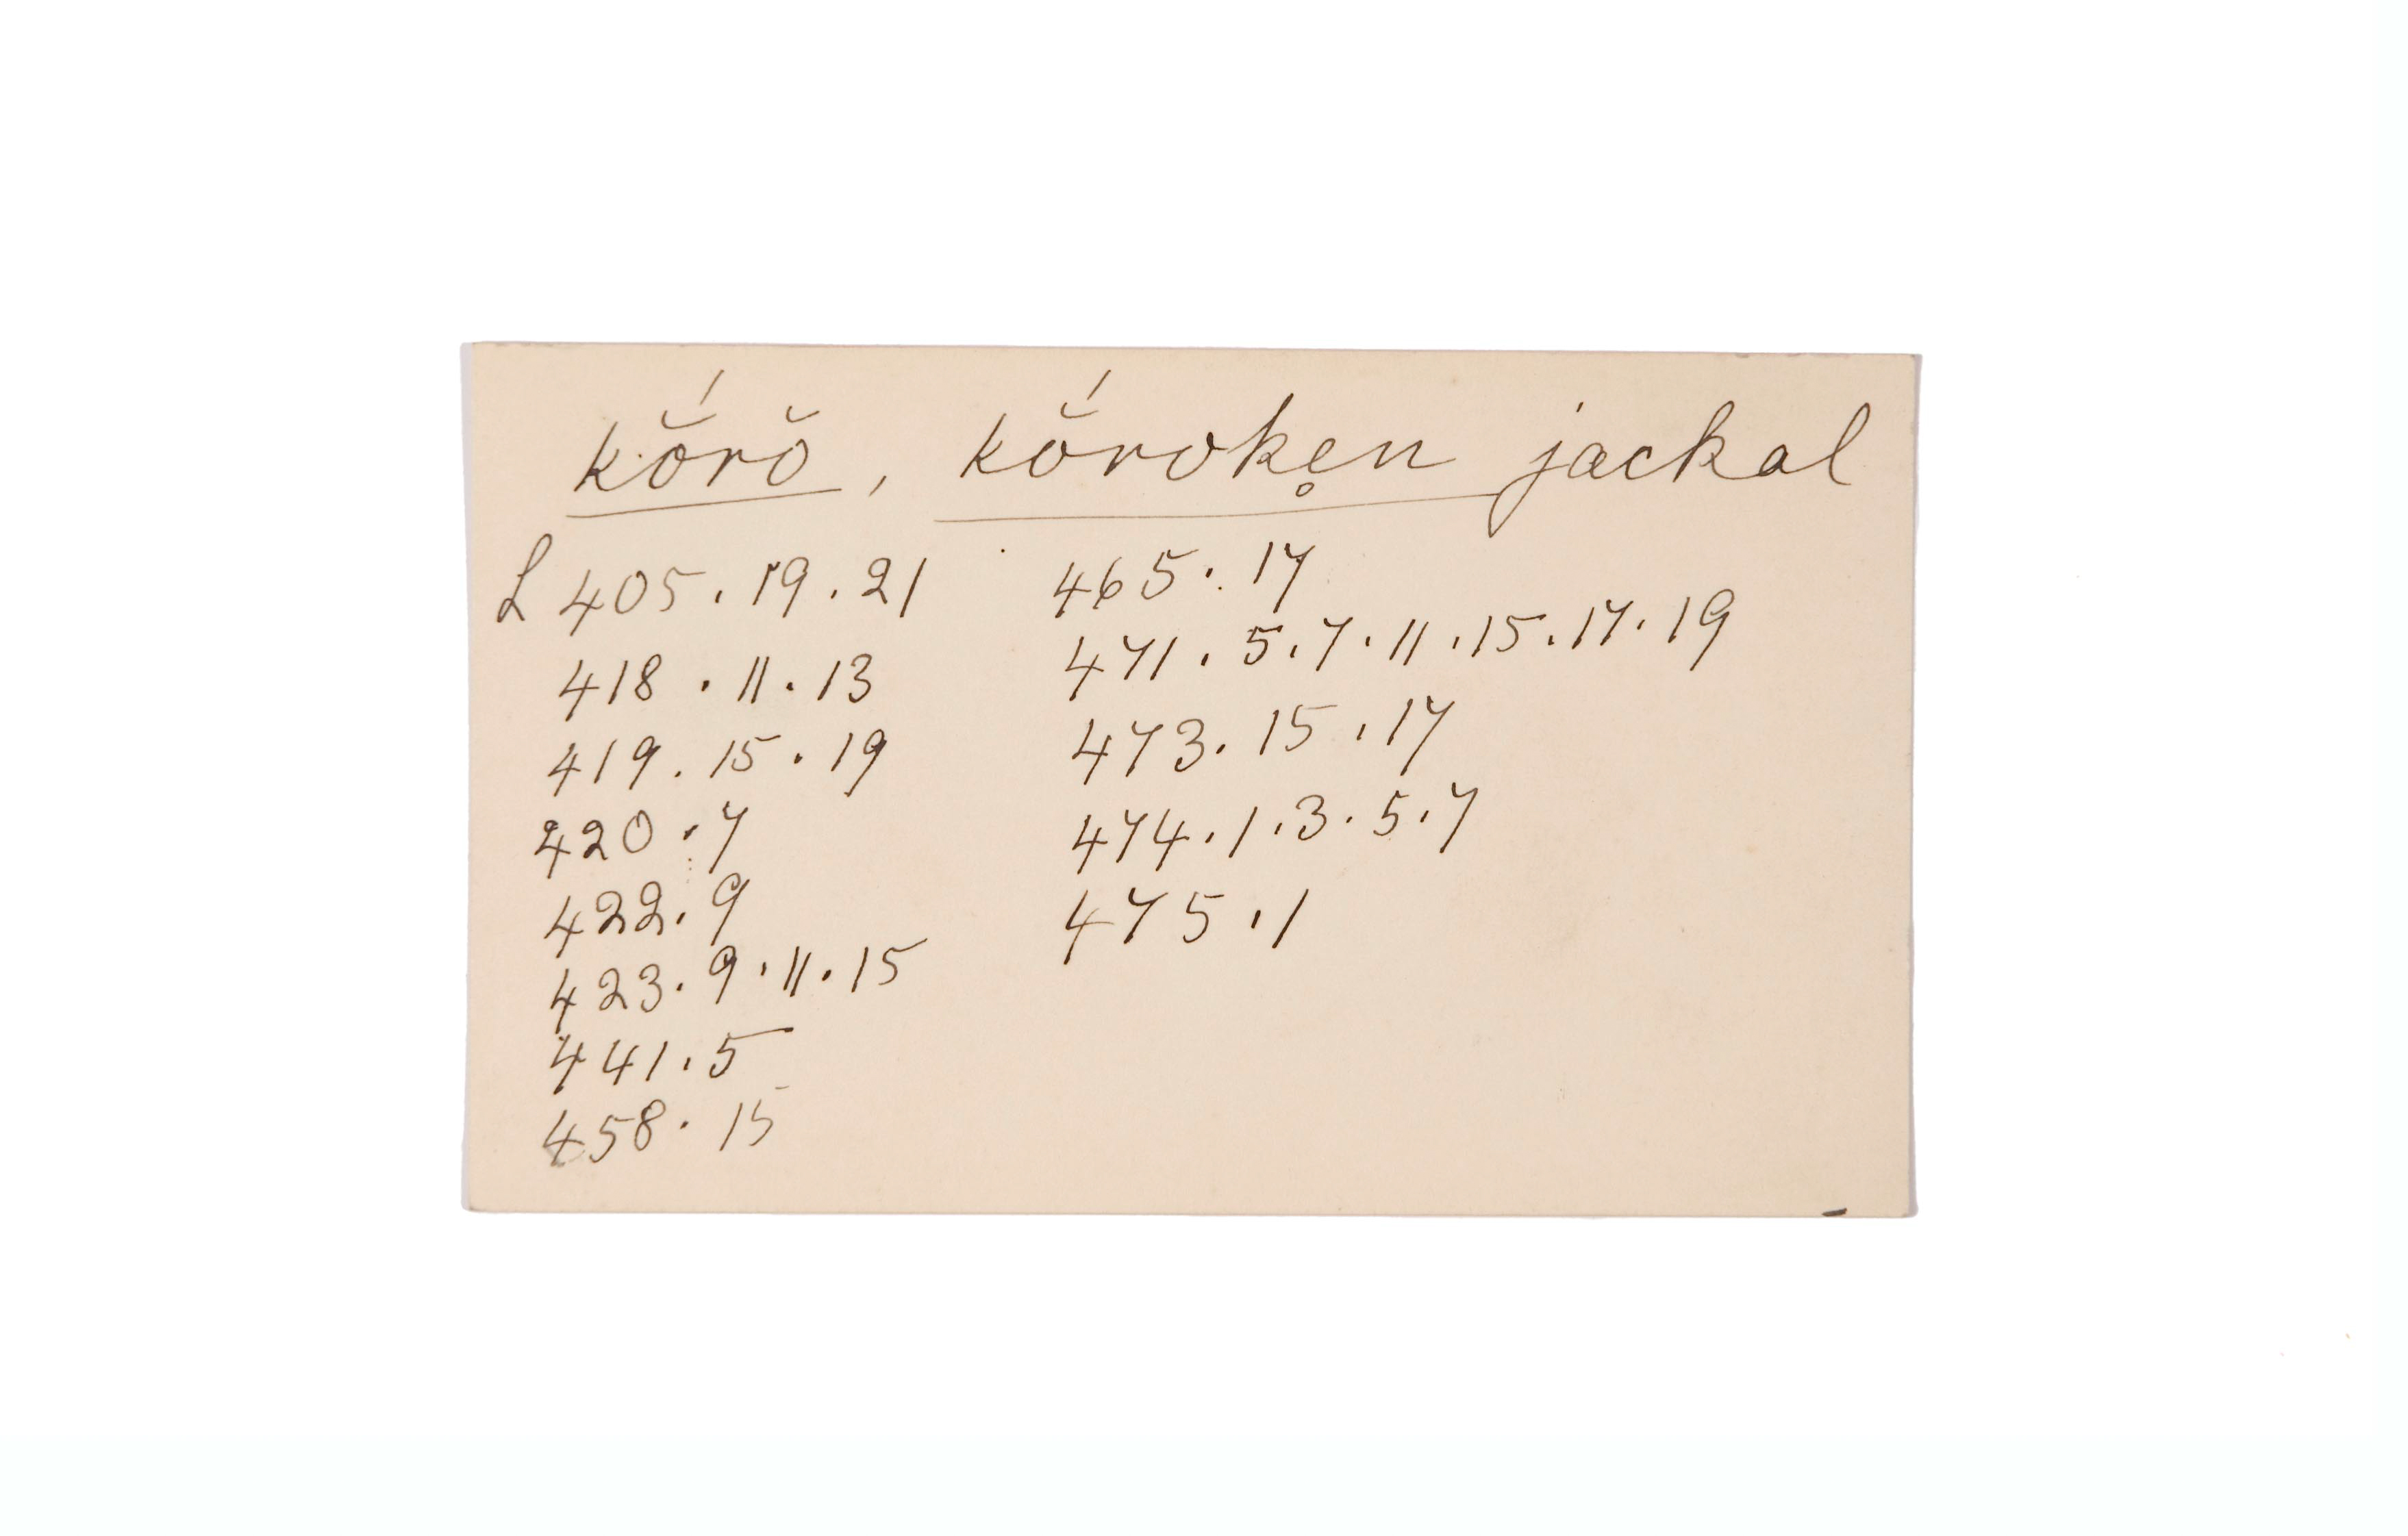 kŏ́rŏ, kŏ́roke̥n jackal
L 405 . 19 . 21
418 . 11 . 13
419 . 15 . 19
420 . 7
422 . 9
423 . 9 . 11 . 15
441 . 5
458 . 15
465 . 17
471 . 5 . 7 . 11 . 15 . 17 . 19
473 . 15 . 17
474 . 1 . 3 . 5 . 7
475 . 1